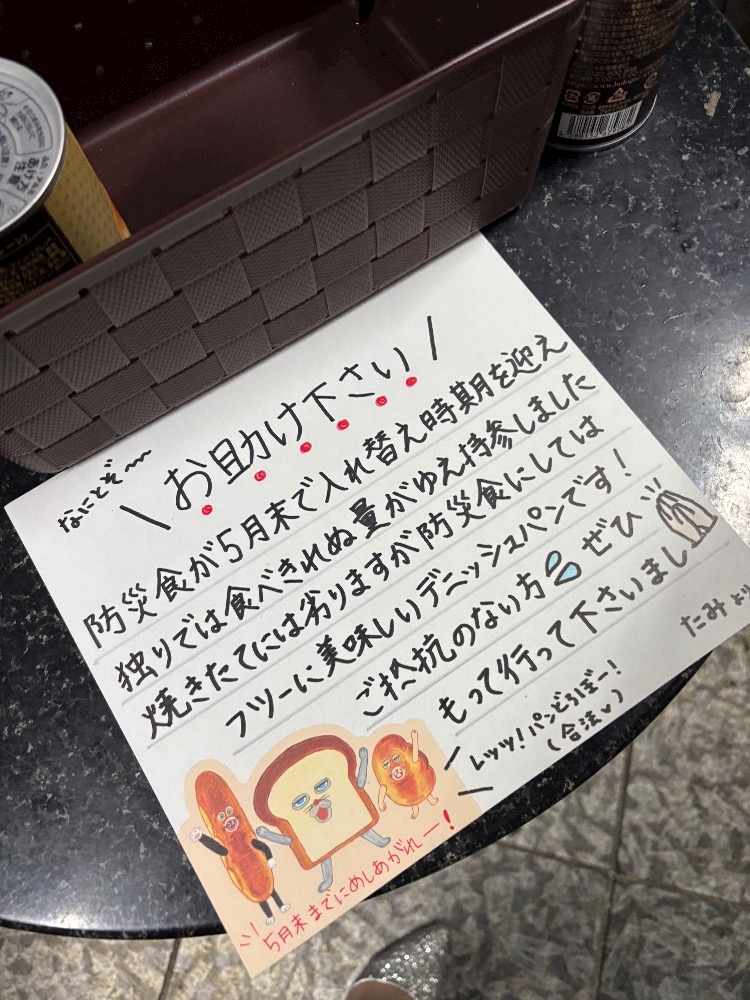 なにとぞ〜
\お助け下さい/
防災食が5月末で入れ替え時期を迎え
独りでは食べきれぬ量がゆえ持参しました
焼きたてには劣りますが防災食にしては
フツーに美味しいデニッシュパンです!
ご抵抗のない方💦ぜひ
もって行って下さいまし
たみより
レッツ!パンどろぼー!
(合法♡)
5月末までにめしあがれー!